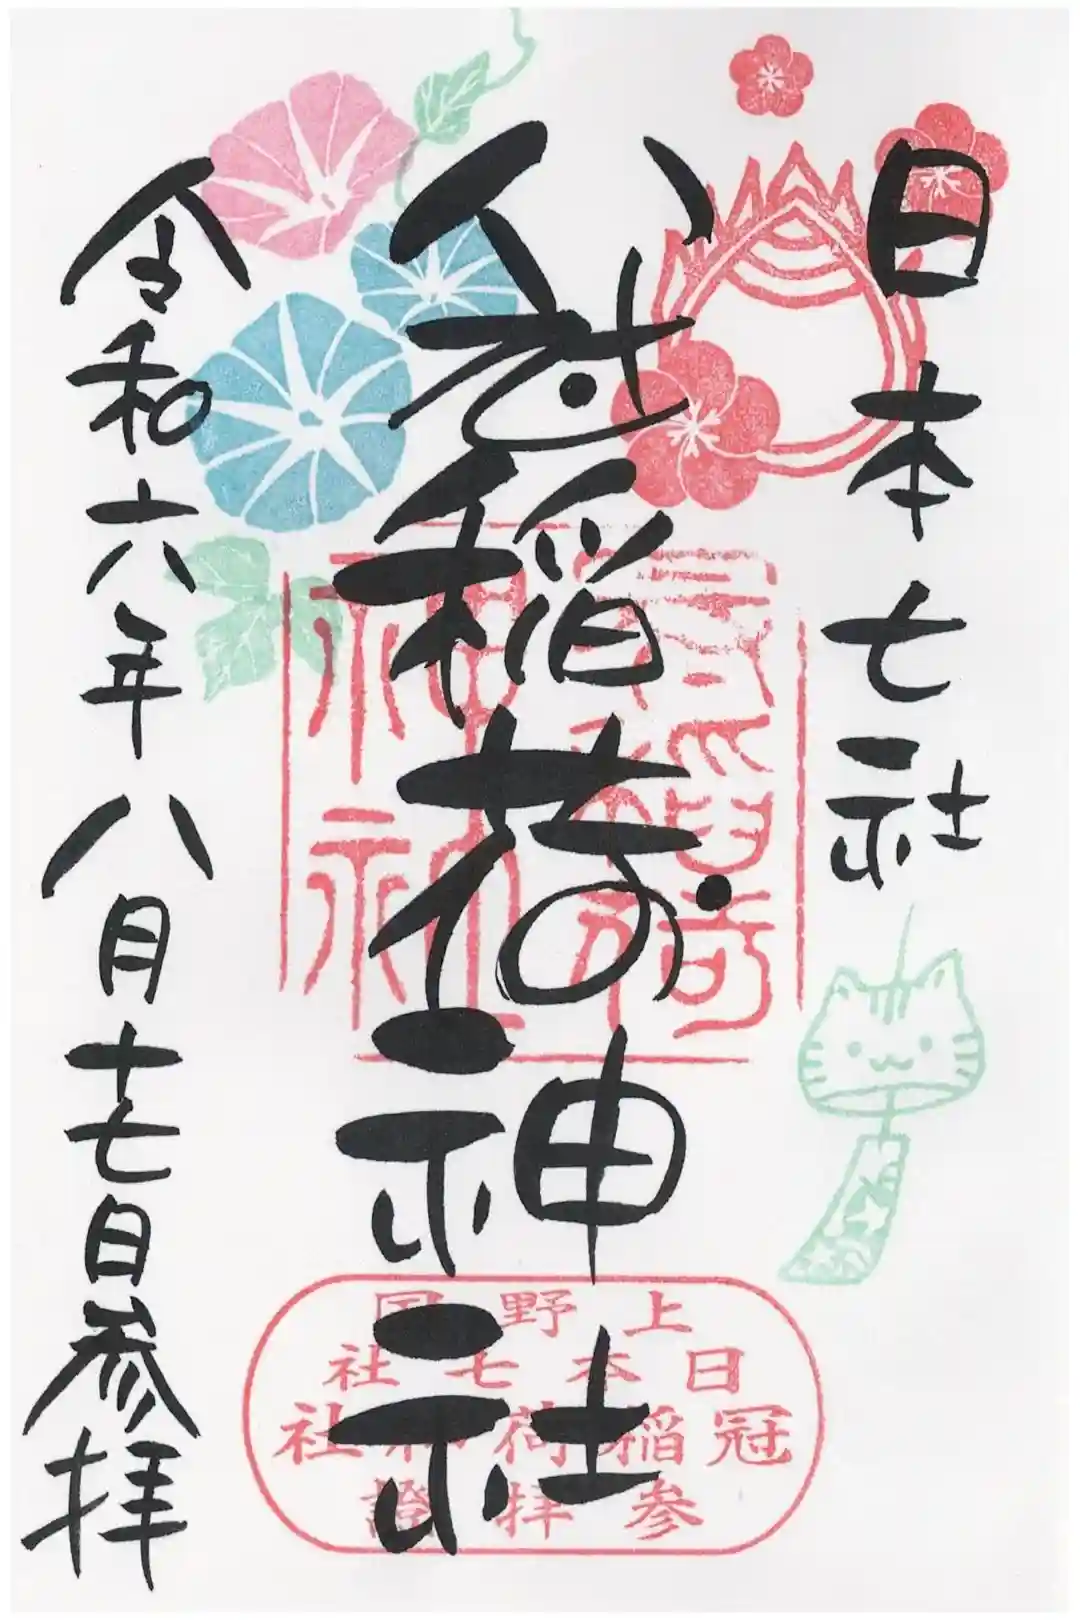 日本七社
冠稲荷神社
令和六年八月十七日参拝
冠稲荷
神社
上野国
日本七社
冠稲荷神社
参拝證